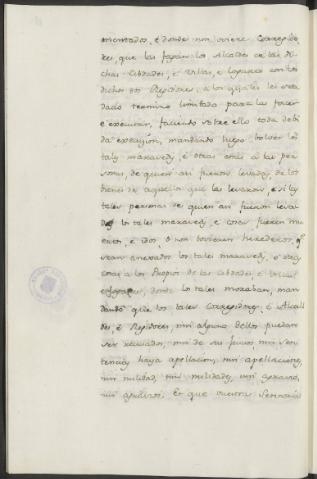 mentados, é donde non oviere Corregido-
res, que las fagan los Alcaldes de las di-
chas Cibdades, é Villas, é Logares con los
dichos dos Regidores, a los quales les será
dado termino limitado para las facer
é executar, faciendo sobre ello toda debi-
da execusion, mandando luego bolver los
tales maravedis, é otras cosas a las per-
sonas de quien asi fueron levados, de los
bienes de aquellos que las levaron, é si las
tales personas de quien asi fueron leva-
dos los tales maravedis, é cosas fueren mu-
ertos, é idos, ó non tovieren herederos, q
sean anexados los tales maravedis, é otras
cosas a los Propios de las Cibdades, é Villas
é Logares, donde los tales moraban, man-
dando que los tales Corregidores, é Alcall-
des, é Regidores, nin alguno dellos puedan
ser recusados, nin de sus juicios, nin sen-
tencias haya apellacion, nin apellaciones,
nin nulidad, nin nulidades, nin agravio,
nin agravios. Et que nuestra Serenisima